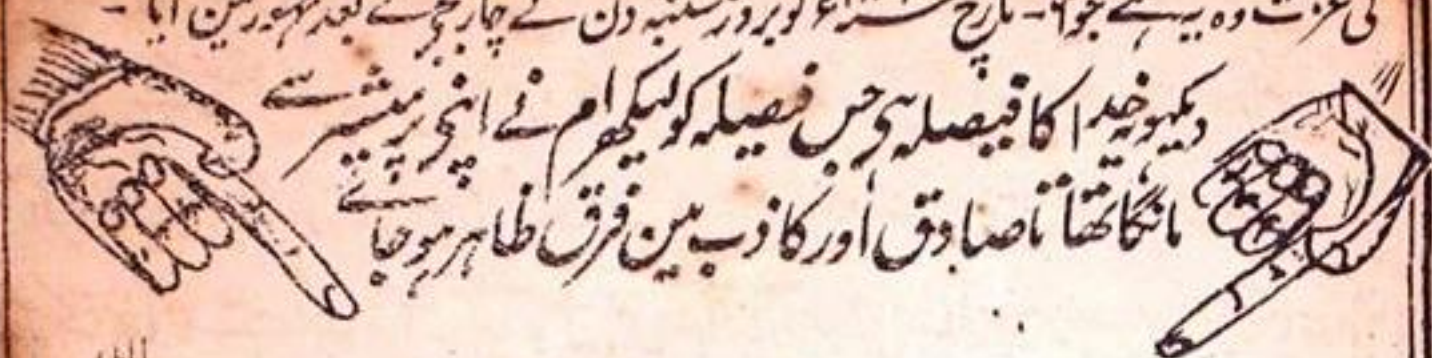 کی عزت وہ یہ ہے جو ۶- تاریخ کو بروز شنبہ دن کے چار بجے کے بعد ظہور مین آیا -
دیکھو خدا کا فیصلہ ہی جس فیصلہ کو لیکھرام نے اپنی پرمیشر سے
مانگا تھا تا صادق اور کاذب مین فرق ظاہر ہو جائے